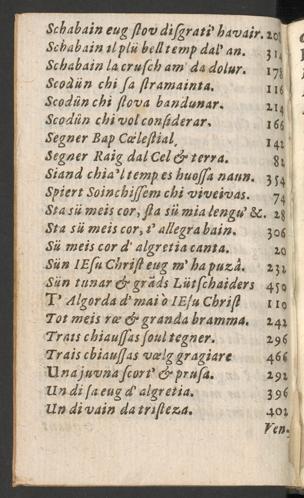 Schabain eug ſlov diſgrati' havair. 205
Schabain ïl plü bell temp dal' an. 314
Schabain la cruſch am' da dolur. 178
Scodün chi ſa ſtramainta. 116
Scodün chi ſlova bandunar. 214
Scodün chi vol conſiderar. 166
Segner Bap Cœleſtial. 142
Segner Raig dal Cel & terra. 82
Siand chia'l temp es huoſſa naun. 354
Spiert Soinchiſſem chi viveivas. 74
Sta sü meis cor, ſta sü mia lengu' &. 28
Sta sü meis cor, t' allegra bain. 306
Sü meis cor d' algretia canta. 20
Sün IESu Chriſt eug m' ha puzâ. 232
Sün tunar & grâds Lütſchaiders 450
T' Algorda d' mai ò IESu Chriſt 110
Tot meis ræ & granda bramma. 242
Trats chiauſſas ſoul tegner. 296
Trais chiauſſas vœlg gragiare 466
Una juvna ſcort' & pruſa. 292
Un di ſa eug d' algretia. 396
Un di vain da triſteza. 402
Ven-